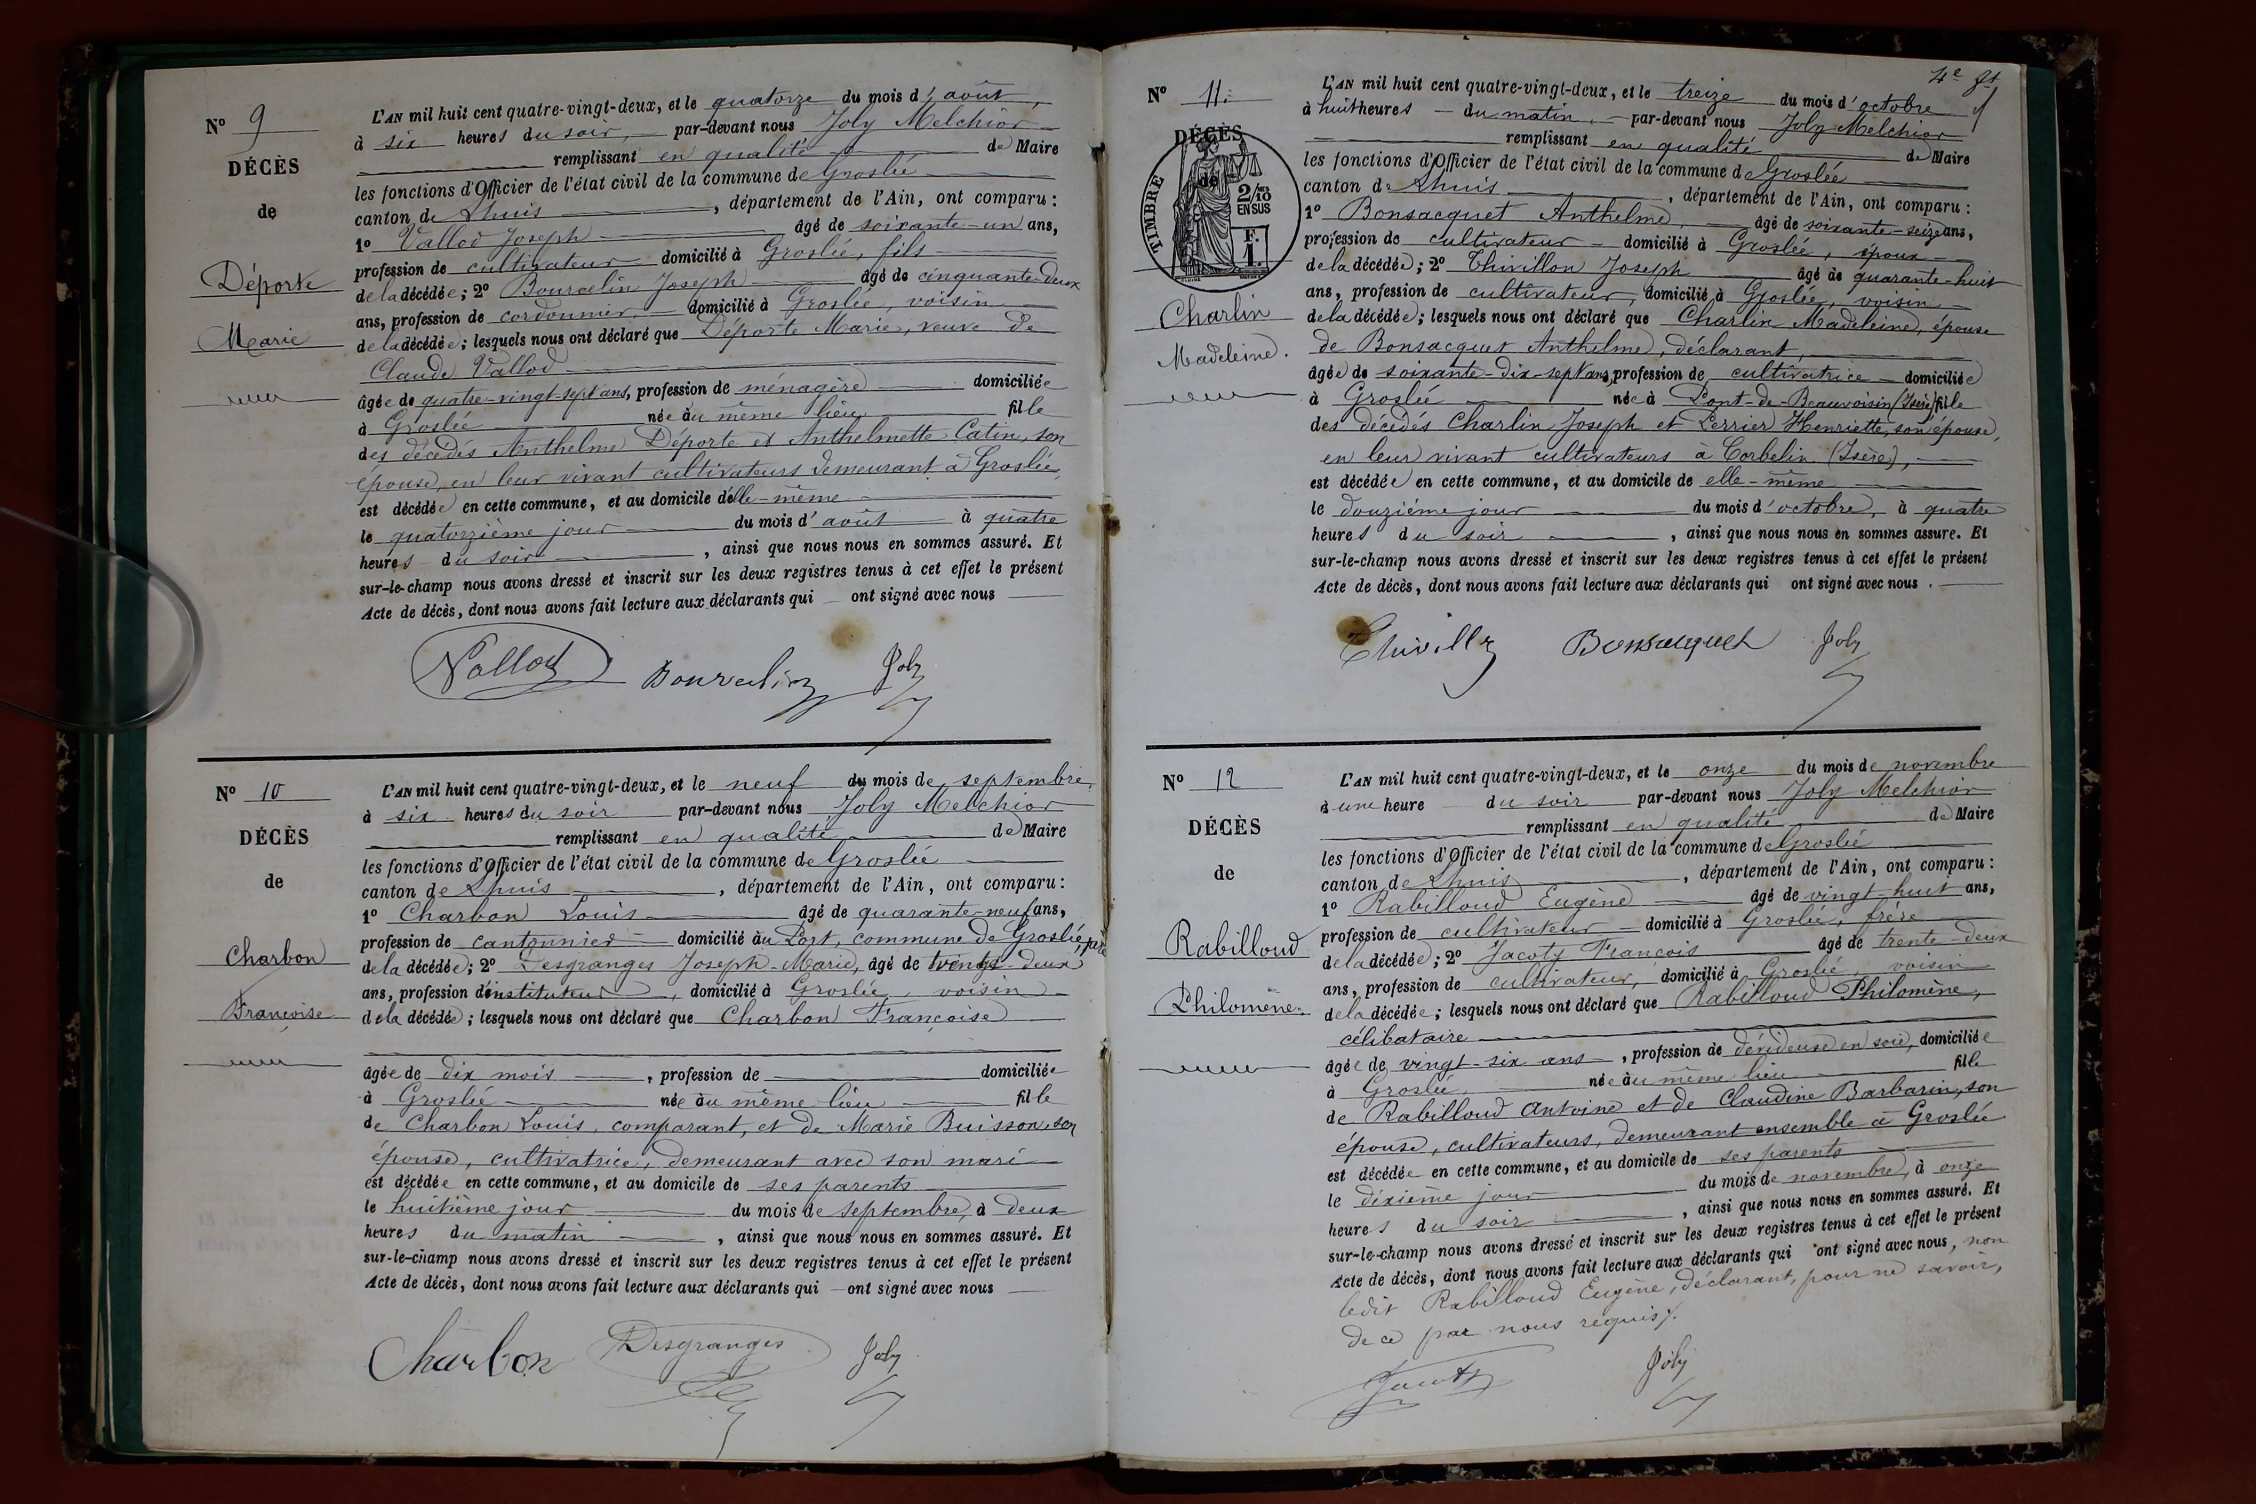 N° 9
DÉCÈS
de
Déporte
Marie
L'AN mil huit cent quatre-vingt-deux, et le quatorze du mois d'août,
à six heures du soir, par-devant nous Joly Melchior
remplissant en qualité de Maire
les fonctions d'Officier de l'état civil de la commune de Groslée
canton de Lhuis, département de l'Ain, ont comparu :
1° Vallod Joseph âgé de soixante-un ans,
profession de cultivateur domicilié à Groslée, fils
de la décédée ; 2° Bourcelin Joseph âgé de cinquante-deux
ans, profession de cordonnier, domicilié à Groslée, voisin
de la décédée ; lesquels nous ont déclaré que Déporte Marie, veuve de
Claude Vallod
âgée de quatre-vingt-sept ans, profession de ménagère domiciliée
à Groslée née au même lieu fille
des décédés Anthelme Déporte et Anthelmette Catin, son
épouse, en leur vivant cultivateurs demeurant à Groslée
est décédée en cette commune, et au domicile d'elle-même
le quatorzième jour du mois d'août à quatre
heures du soir, ainsi que nous nous en sommes assuré. Et
sur-le-champ nous avons dressé et inscrit sur les deux registres tenus à cet effet le présent
Acte de décès, dont nous avons fait lecture aux déclarants qui ont signé avec nous
Vallod Bourcelin Joly
N° 10
DÉCÈS
de
Charbon
Françoise
L'AN mil huit cent quatre-vingt-deux, et le neuf du mois de septembre,
à six heures du soir par-devant nous Joly Melchior
remplissant en qualité de Maire
les fonctions d'Officier de l'état civil de la commune de Groslée
canton de Lhuis, département de l'Ain, ont comparu :
1° Charbon Louis âgé de quarante-neuf ans,
profession de cantonnier domicilié au Port, commune de Groslée, père
de la décédée ; 2° Desgranges Joseph-Marie, âgé de vingt-deux
ans, profession d'instituteur, domicilié à Groslée, voisin
de la décédée ; lesquels nous ont déclaré que Charbon Françoise
âgée de dix mois, profession de domiciliée
à Groslée née au même lieu fille
de Charbon Louis, comparant, et de Marie Buisson, son
épouse, cultivatrice, demeurant avec son mari
est décédée en cette commune, et au domicile de ses parents
le huitième jour du mois de septembre, à deux
heures du matin, ainsi que nous nous en sommes assuré. Et
sur-le-champ nous avons dressé et inscrit sur les deux registres tenus à cet effet le présent
Acte de décès, dont nous avons fait lecture aux déclarants qui ont signé avec nous
Charbon Desgranges Joly
4e ft
N° 11.
DÉCÈS
de
TIMBRE
2/10 EN SUS
F. 1.
Charlin
Madeleine.
L'AN mil huit cent quatre-vingt-deux, et le treize du mois d'octobre
à huit heures du matin, par-devant nous Joly Melchior
remplissant en qualité de Maire
les fonctions d'Officier de l'état civil de la commune de Groslée
canton de Lhuis, département de l'Ain, ont comparu :
1° Bonsacquet Anthelme, âgé de soixante-seize ans,
profession de cultivateur domicilié à Groslée, époux
de la décédée ; 2° Thivillon Joseph âgé de quarante-huit
ans, profession de cultivateur, domicilié à Groslée, voisin
de la décédée ; lesquels nous ont déclaré que Charlin Madeleine, épouse
de Bonsacquet Anthelme, déclarant,
âgée de soixante-dix-sept ans, profession de cultivatrice domiciliée
à Groslée née à Pont-de-Beauvoisin (Isère) fille
des décédés Charlin Joseph et Perrier Henriette, son épouse,
en leur vivant cultivateurs à Corbelin (Isère),
est décédée en cette commune, et au domicile de elle-même
le douzième jour du mois d'octobre, à quatre
heures du soir, ainsi que nous nous en sommes assuré. Et
sur-le-champ nous avons dressé et inscrit sur les deux registres tenus à cet effet le présent
Acte de décès, dont nous avons fait lecture aux déclarants qui ont signé avec nous.
Bonsacquet Joly
N° 12
DÉCÈS
de
Rabilloud
Philomène.
L'AN mil huit cent quatre-vingt-deux, et le onze du mois de novembre
à une heure du soir par-devant nous Joly Melchior
remplissant en qualité de Maire
les fonctions d'Officier de l'état civil de la commune de Groslée
canton de Lhuis, département de l'Ain, ont comparu :
1° Rabilloud Eugène âgé de vingt-huit ans,
profession de cultivateur domicilié à Groslée, frère
de la décédée ; 2° Jacoty François âgé de trente-deux
ans, profession de cultivateur, domicilié à Groslée, voisin
de la décédée ; lesquels nous ont déclaré que Rabilloud Philomène,
célibataire
âgée de vingt-six ans, profession de dévideuse en soie, domiciliée
à Groslée née au même lieu fille
de Rabilloud Antoine et de Claudine Barbarin, son
épouse, cultivateurs, demeurant ensemble à Groslée
est décédée en cette commune, et au domicile de ses parents
le dixième jour du mois de novembre, à onze
heures du soir, ainsi que nous nous en sommes assuré. Et
sur-le-champ nous avons dressé et inscrit sur les deux registres tenus à cet effet le présent
Acte de décès, dont nous avons fait lecture aux déclarants qui ont signé avec nous, non
ledit Rabilloud Eugène, déclarant, pour ne savoir,
de ce par nous requis.
Joly